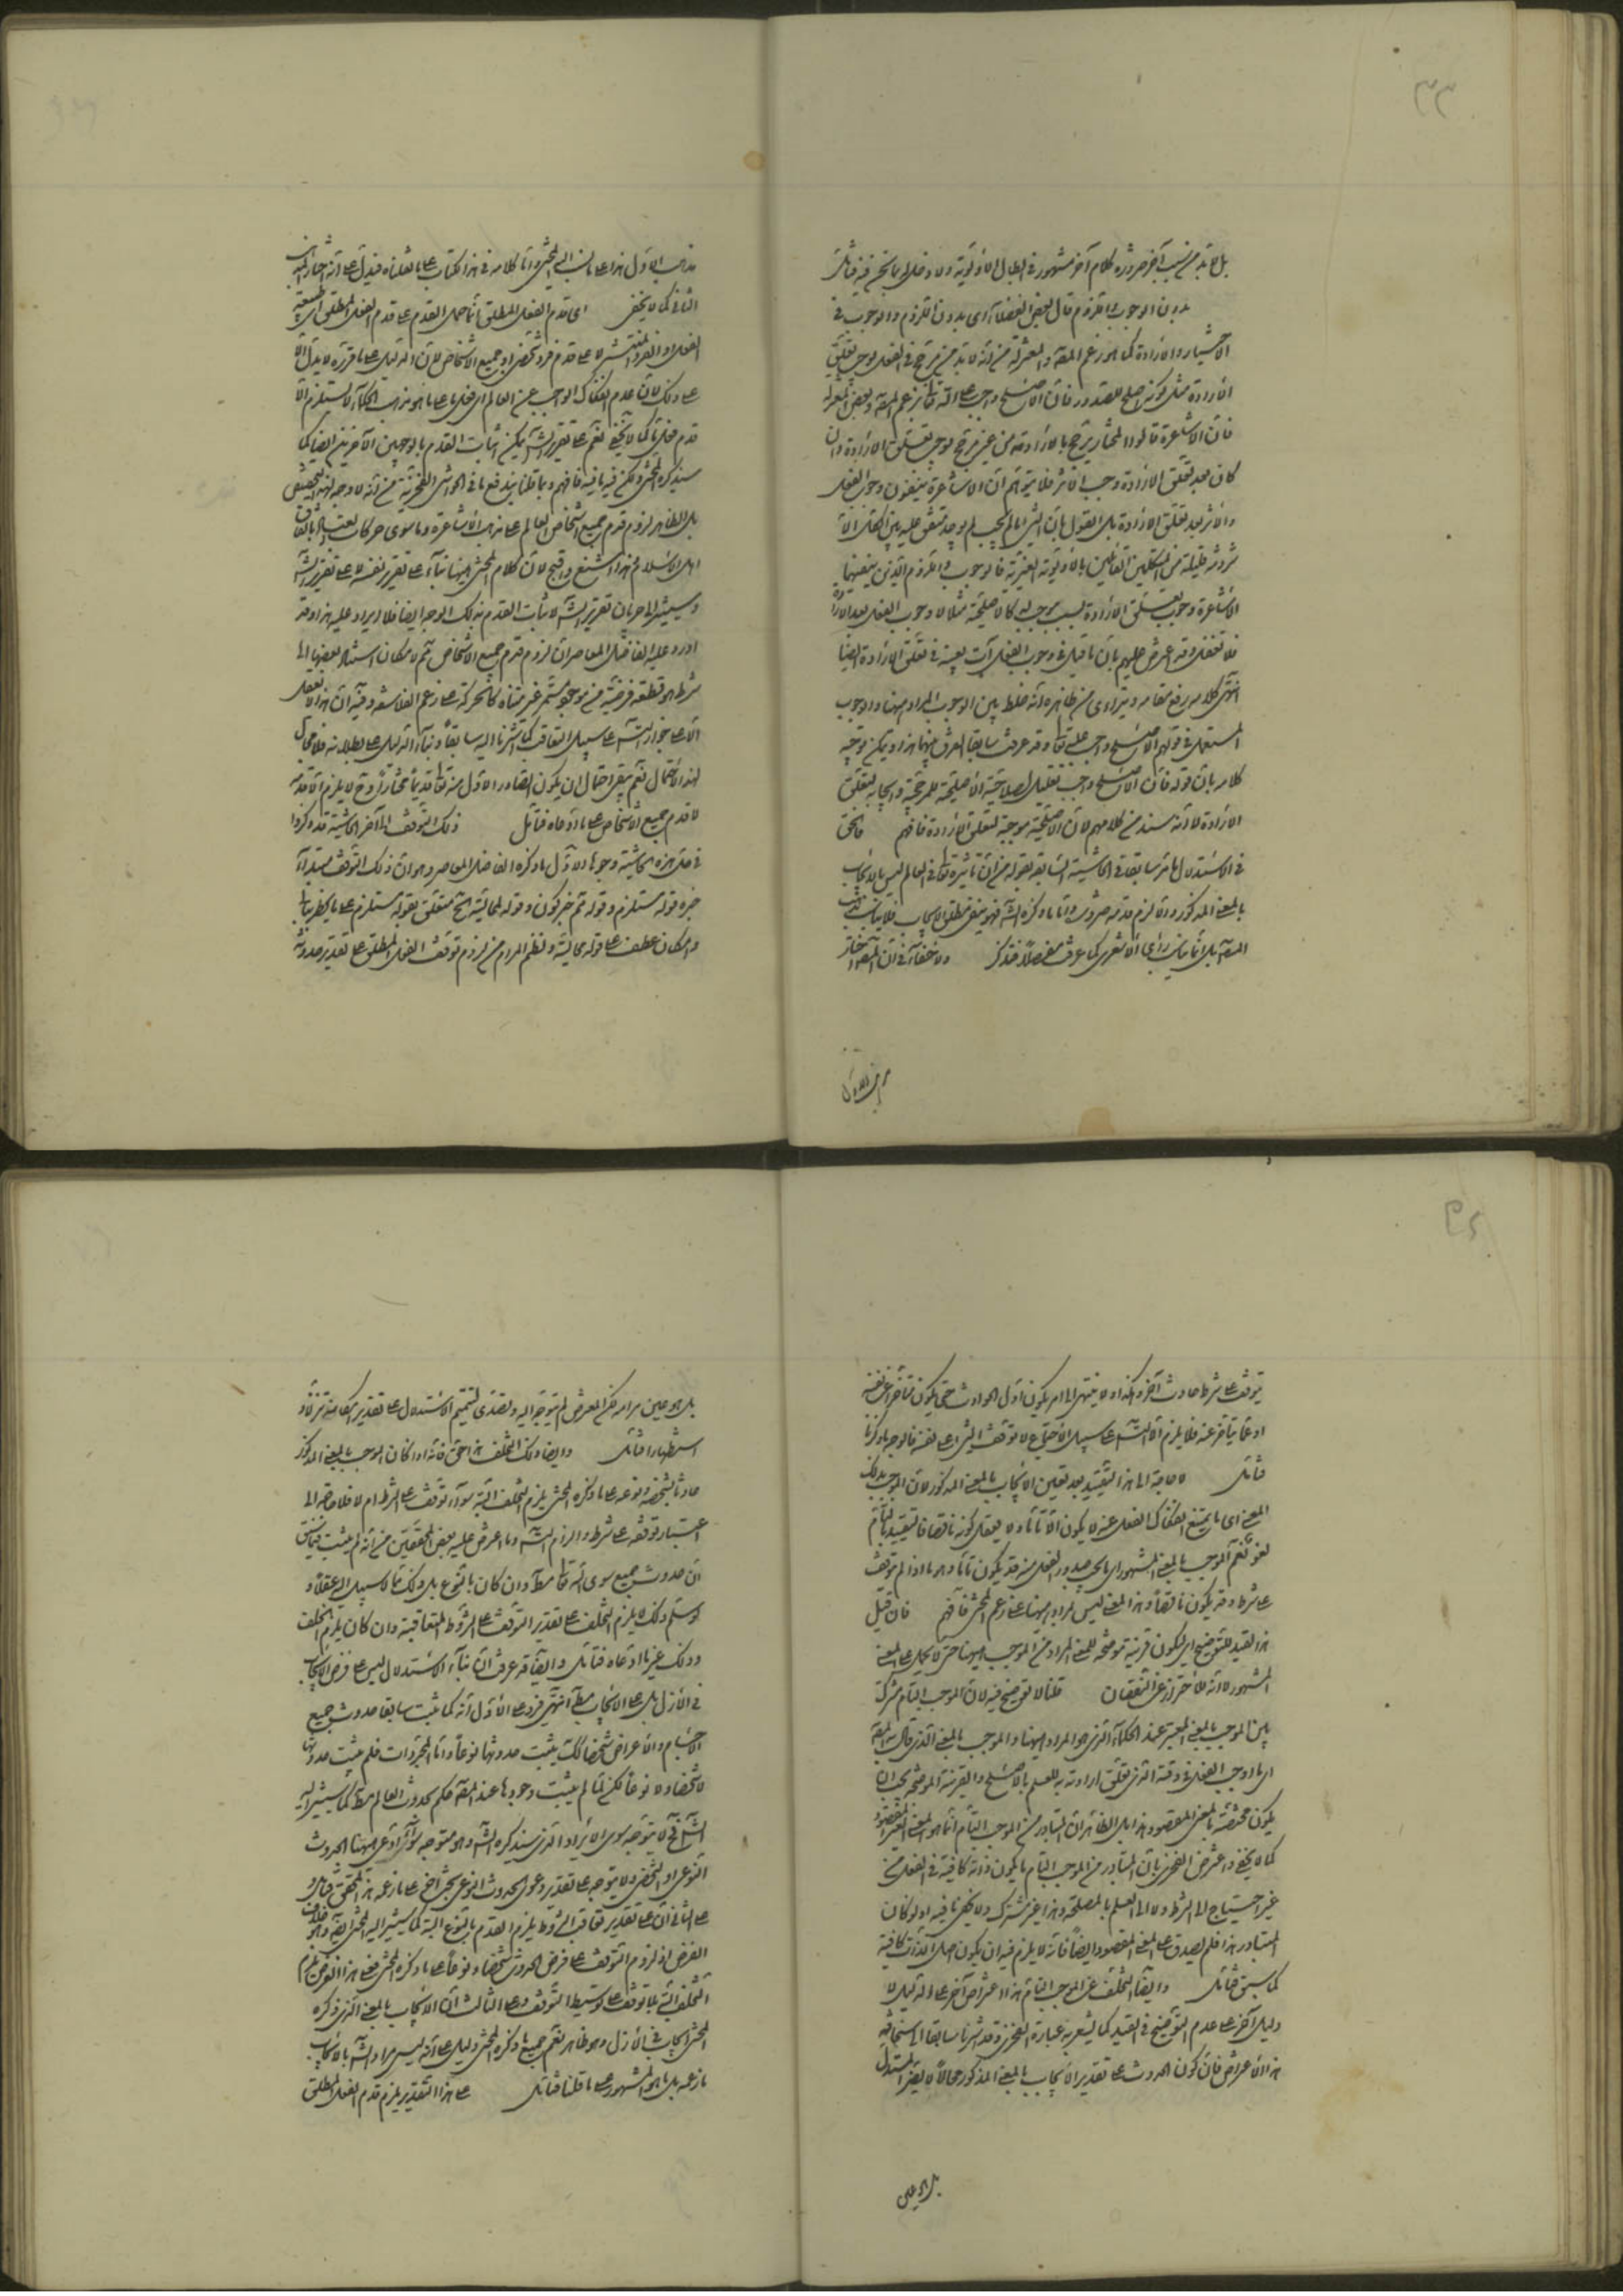 بل لابد من سبب آخر ضرورة كلام آخر مشهور فى ابطال الاولوية ولا دخل له بما نحن فيه فتأمل
بدون الوجوب واللزوم قال بعض الفضلاء اى بدون اللزوم والوجوب فى
الاختيار والارادة كما هو زعم المصـ والمعتزلة من انه لا بد من مرجح فى الفعل يوجب تعلق
الارادة مثل كونه اصلح للصدور فان الاصلح واجب عليه تعا بزعم المصـ وبعض المعتزلة
فان الاشاعرة قالوا المختار يرجح بالارادة من غير مرجح يوجب تعلق الارادة وان
كان بعد تعلق الارادة وجب الاثر فلا يتوهم ان الاشاعرة ينفون وجوب الفعل
والاثر بعد تعلق الارادة بل القول بان الشئ ما لم يجب لم يوجد متفق عليه بين الكل الا
شرذمة قليلة من المتكلمين القائلين بالاولوية الغيرية فالوجوب واللزوم الذين ينفيهما
الاشاعرة وجوب تعلق الارادة بسبب موجب له كالاصلحية مثلا لا وجوب الفعل بعد الارادة
فلا تغفل وقد اعترض عليهم بان ما قيل فى وجوب الفعل آت بعينه فى تعلق الارادة ايضا
انتهى كلامه رفع مقامه ويتراءى من ظاهره انه خلط بين الوجوب المراد ههنا والوجوب
المستعمل فى قولهم الاصلح واجب عليه تعا وقد عرفت سابقا الفرق بينهما هذا ويمكن توجيه
كلامه بان قوله فان الاصلح واجب تعليل لصلاحية الاصلحية للمرجحية وايجابه لتعلق
الارادة لا انه سند من كلامهم لان الاصلحية موجبة لتعلق الارادة فافهم فالحق
فى الاستدلال ما مر سابقا فى الحاشية السابقة بقوله من ان تأثيره تعا فى العالم ليس بالايجاب
بالمعنى المذكور والا لزم قدمه ضرورة واما ما ذكره الشـ فهو ينفى مطلق الايجاب فلا يناسب مذهب
المصـ بل انما يناسب رأى الاشعرى كما عرفت مفصلا فتذكر ولا خفاء فى ان المصـ اختار
مذهب الاول
مذهب الاول هذا على ما نسب اليه المحشى واما كلامه فى هذا الكتاب على ما نقلناه فيدل على انه اختار المذهب
الثانى كما لا يخفى اى قدم الفعل المطلق انما حمل القدم على قدم الفعل المطلق اى طبيعة
الفعل او الفرد المنتشر لا على قدم فرد شخصى او جميع الاشخاص لان الدليل على ما قرره لا يدل الا
على ذلك لان عدم انفكاك الواجب عن العالم اى فعل ما على ما هو مذهب الحكماء لا يستلزم الا
قدم فعل ما كما لا يخفى نعم على تقرير الشـ يمكن اثبات القدم بالوجهين الآخرين ايضا كما
سيذكره المحشى ولكن فيه ما فيه فافهم وبما قلنا يندفع ما فى الحواشى الفخرية من انه لا وجه لهذا التخصيص
بل الظاهر لزوم قدم جميع اشخاص العالم على مذهب الاشاعرة وما سوى حركات العباد باتفاق
اهل الاسلام وهذا اشنع واقبح لان كلام المحشى ههنا بناء على تقرير نفسه لا على تقرير الشـ
وسيشير الى جريان تقرير الشـ لاثبات القدم بذلك الوجه ايضا فلا ايراد عليه هذا وقد
اورد عليه الفاضل المعاصر ان لزوم قدم جميع الاشخاص ثم لامكان استناد بعضها الى
شرط هو قطعة فرضية من موجود مستمر غير متناه كالحركة على زعم الفلاسفة وفيه ان هذا لا يعقل
الا على جواز التسـ على سبيل التعاقب كما اشرنا اليه سابقا وبناء الدليل على بطلانه فلا مجال
لهذا الاحتمال نعم يبقى احتمال ان يكون الصادر الاول منه تعا قديما مختارا وح لا يلزم الا قدمه
لا قدم جميع الاشخاص على ما ادعاه فتأمل ذلك التوقف الى آخر الحاشية قد ذكروا
فى حل هذه الحاشية وجوها الاول ما ذكره الفاضل المعاصر وهو ان ذلك التوقف مبتدأ
خبره قوله مستلزم وقوله ثم خبر كون وقوله لمحالية الخ متعلق بقوله مستلزم على ما يخطر ببالى
وامكان عطف على قوله محالية ونظم المرام من لزوم توقف الفعل المطلق على تقدير حدوثه
يتوقف على شرط حادث آخر وهكذا ولا ينتهى الى امر يكون اول الحوادث حتى يكون متأخرا عن نفسه
او عما يتأخر عنه فلا يلزم الا التسـ على سبيل الاجتماع لا توقف الشئ على نفسه فالوجه ما ذكرنا
فتأمل لا حاجة الى هذا التقييد بعد تعيين الايجاب بالمعنى المذكور لان الموجب بذلك
المعنى اى ما يمتنع انفكاك الفعل عنه لا يكون الا تاما ولا يعقل كونه ناقصا فالتقييد بالتام
لغو نعم الموجب بالمعنى المشهور اى ما يجب صدور الفعل منه قد يكون تاما وهو ما اذا لم يتوقف
على شرط وقد يكون ناقصا وهذا المعنى ليس المراد ههنا على زعم المحشى فافهم فان قيل
هذا القيد للتوضيح اى ليكون قرينة موضحة للمعنى المراد من الموجب ههنا حتى لا يحمل على المعنى
المشهور لا انه للاحتراز عن النقصان قلنا لا توضيح فيه لان الموجب التام مشترك
بين الموجب بالمعنى المعتبر عند الحكماء الذى هو المراد ههنا والموجب بالمعنى الذى قال به المصـ
اى ما اوجب الفعل فى وقته الذى تعلق ارادته به للعلم بالاصلح والقرينة الموضحة يجب ان
يكون مختصة بالمعنى المقصود هذا بل الظاهر ان المتبادر من الموجب التام انما هو المعنى الغير المقصود
كما لا يخفى واعترض الفخرى بان المتبادر من الموجب التام ما يكون ذاته كافية فى الفعل من
غير احتياج الى الشرط ولا الى العلم بالمصلحة وهذا غير مشترك ولا يخفى ما فيه اذ لو كان
المتبادر هذا فلم يصدق على المعنى المقصود ايضا فانه لا يلزم فيه ان يكون اصل الذات كافية
كما سبق فتأمل وايضا التخلف عن الموجب التام هذا اعتراض آخر على الدليل لا
دليل آخر على عدم التوضيح فى القيد كما يشعر به عبارة الفخرى وقد اشرنا سابقا الى سخافته
هذا الاعتراض فان كون الحدوث على تقدير الايجاب بالمعنى المذكور محالا لا يضر المستدل
بل هو عين
بل هو عين مرامه لكن المعرض لم يتوجه اليه وتصدى لتتميم الاستدلال على تقدير امكانه تنزلا و
استظهارا فتأمل وايضا ذلك التخلف هذا حق فانه اذا كان الموجب بالمعنى المذكور
حادثا بشخصه ونوعه على ما ذكره المحشى يلزم التخلف البتة سواء توقف على الشرط ام لا فلا حاجة الى
اعتبار توقفه على شرط والزام التسـ وما اعترض عليه بعض المحققين من انه لم يثبت فيما سبق
ان حدوث جميع سوى الله تعا مط وان كان بالنوع بل ذلك مما لا سبيل اليه عقلا و
لو سلم ذلك لا يلزم التخلف على تقدير التوقف على الشروط المتعاقبة وان كان يلزم الخلف
وذلك غير ما ادعاه فتأمل وايضا قد عرفت ان بناء الاستدلال ليس على فرض الايجاب
فى الازل بل على الايجاب مط انتهى فيرد على الاول انه كما ثبت سابقا حدوث جميع
الاجسام والاعراض شخصا كك يثبت حدوثها نوعا واما المجردات فلم يثبت حدوثها
لا شخصا ولا نوعا لكن لما لم يثبت وجودها عند المصـ حكم بحدوث العالم مط كما سيشير اليه
الشـ فح لا يتوجه سوى الايراد الذى سيذكره الشـ وهو متوجه سواء ادعى ههنا الحدوث
النوعى او الشخصى ولا يتوجه على تقدير دعوى الحدوث النوعى بحث آخر على ما زعمه هذا المحقق فتأمل و
على الثانى ان على تقدير تعاقب الشروط يلزم القدم بالنوع البتة كما سيشير اليه المحشى ايضا وهو خلاف
الفرض اذ لزوم التوقف على فرض الحدوث شخصا ونوعا على ما ذكره المحشى فعلى هذا الفرض يلزم
التخلف البتة بلا توقف على توسيط التوقف وعلى الثالث ان الايجاب بالمعنى الذى ذكره
المحشى ايجاب فى الازل وهو ظاهر نعم جميع ما ذكره المحشى دليل على انه ليس مراد الشـ بالايجاب
ما زعمه بل ما هو المشهور على ما قلنا فتأمل على هذا التقدير يلزم قدم الفعل المطلق